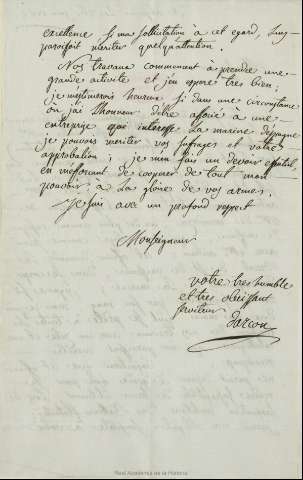 excellence si ma sollicitation à cet egard, luy
paroissoit meriter quelqu'attention.
Nos travaux commencent à prendre une
grande activité et j'en espere tres bien;
je m'estimerois heureux si dans une circonstance
ou j'ai l'honneur d'etre associé a une
entreprise qui interesse la marine d'espagne
je pouvois meriter vos suffrages et votre
approbation; je me fais un devoir essentiel
en m'efforcant de cooperer de tout mon
pouvoir à la gloire de vos armes.
Je suis avec un profond respect
Monseigneur
votre tres humble
et tres obeissant
serviteur
Darcon
Real Academia de la Historia